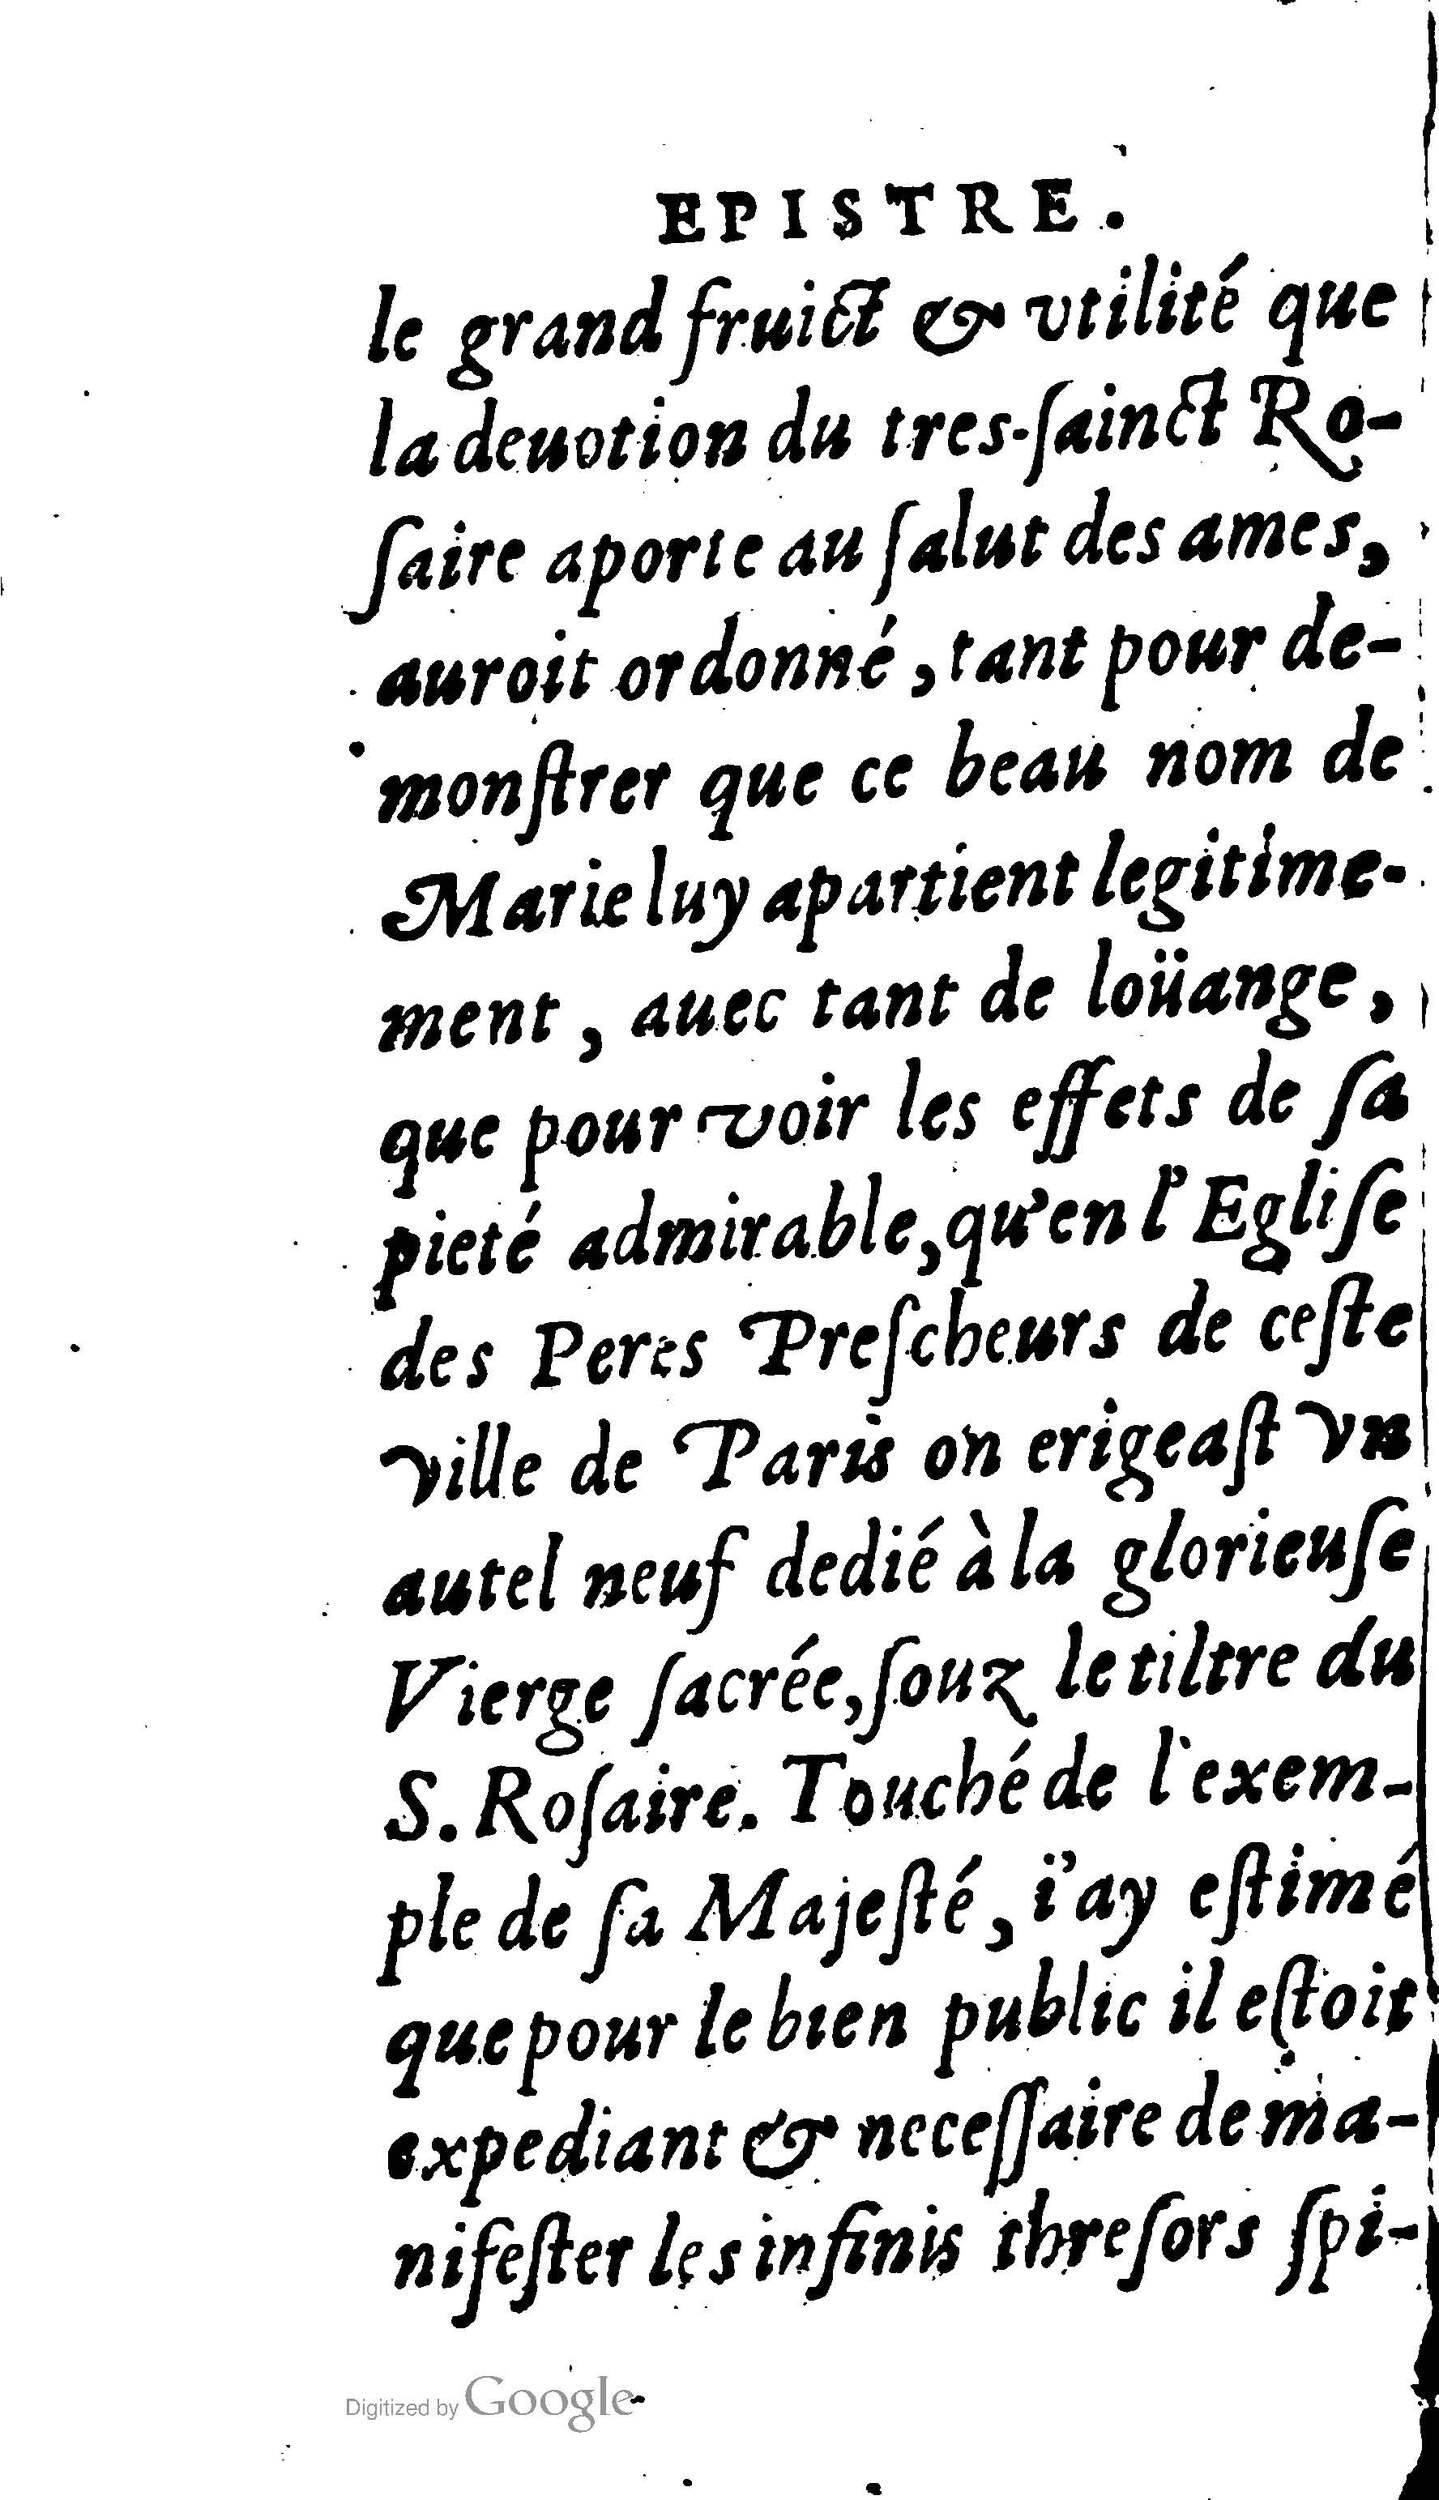 EPISTRE.
le grand fruict & vtilité que
la deuotion du tres-ſainct Ro-
ſaire aporte au ſalut des ames,
auroit ordonné, tant pour de-
monſtrer que ce beau nom de
Marie luy apartient legitime-
ment, auec tant de loüange,
que pour voir les effets de ſa
pieté admirable, qu'en l'Egliſe
des Peres Preſcheurs de ceſte
ville de Paris on erigeaſt vn
autel neuf dedié à la glorieuſe
Vierge ſacrée, ſouz le tiltre du
S. Roſaire. Touché de l'exem-
ple de ſa Majeſté, i'ay eſtimé
que pour le bien public il eſtoit
expediant & neceſſaire de ma-
nifeſter les infinis threſors ſpi-
Digitized by Google